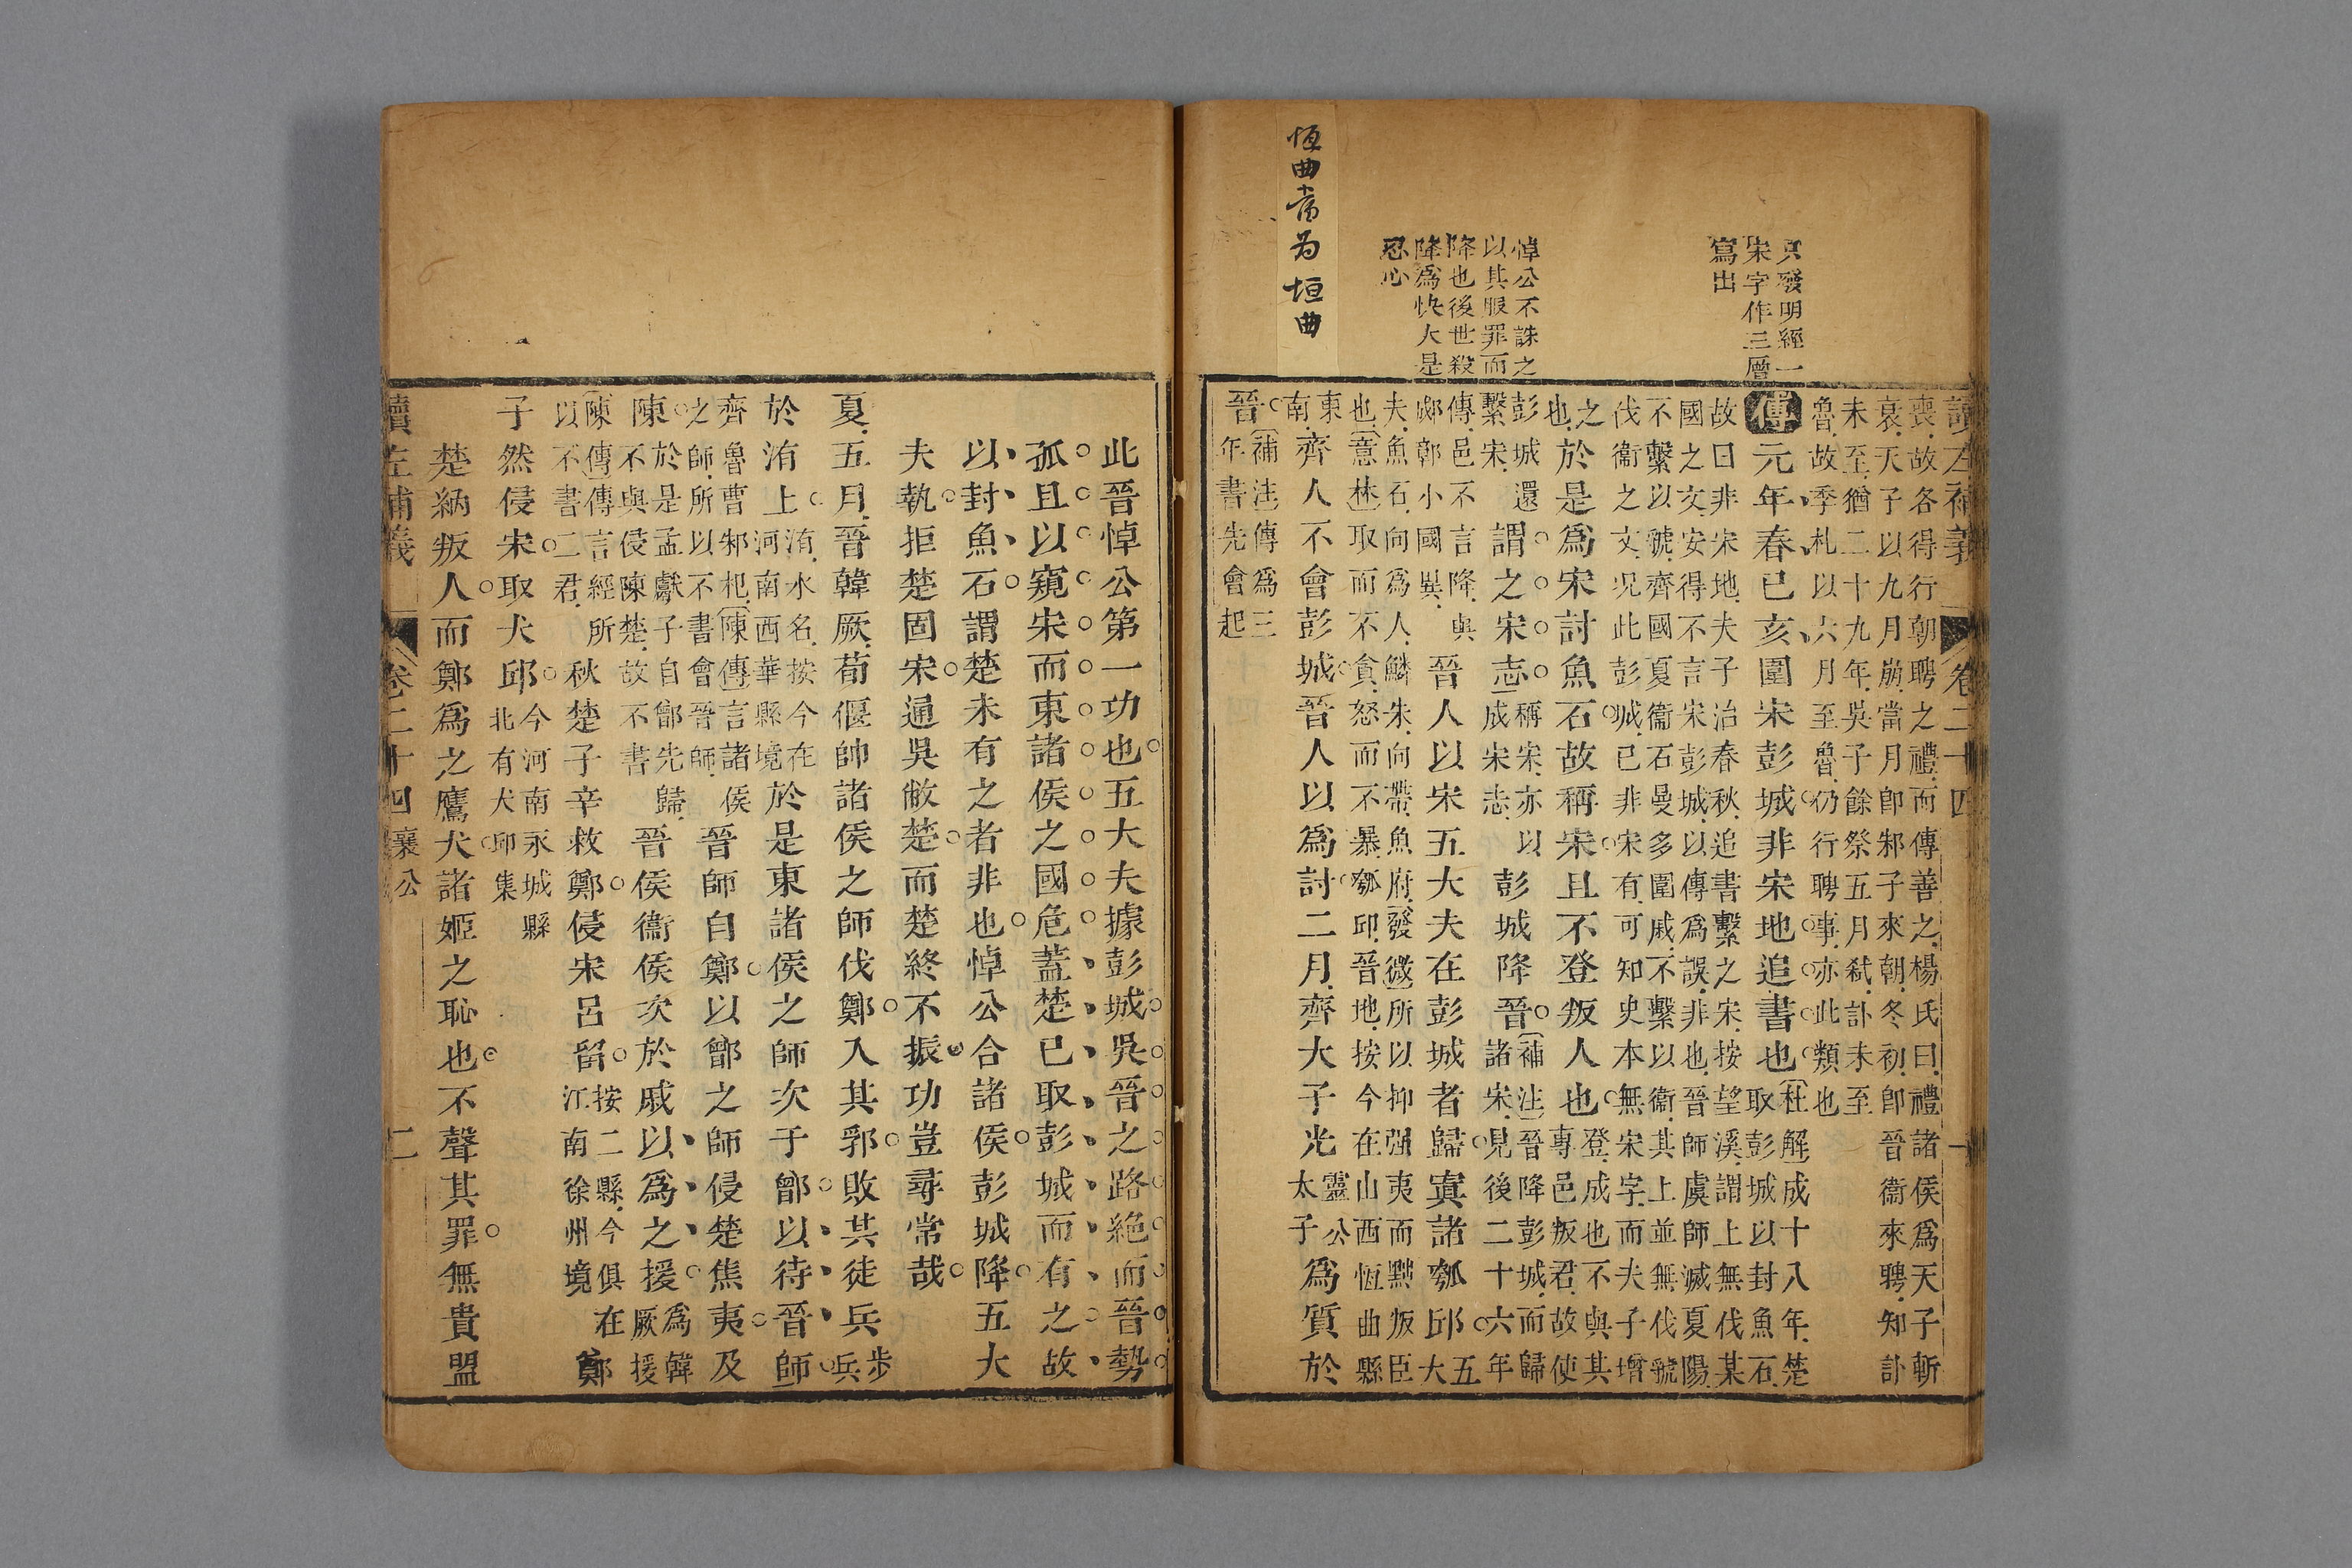 讀左補義 卷二十四 一
只發明經一
宋字作三層
寫出
悼公不誅之
以其服罪而
降也後世殺
降爲快大是
忍心
恆曲當为垣曲
喪故各得行朝聘之禮而傳善之楊氏曰禮諸侯爲天子斬
衰天子以九月崩當月卽邾子來朝冬初卽晉衞來聘知訃
未至猶二十九年吳子餘祭五月弒訃未至
魯故季札以六月至魯仍行聘事亦此類也
傳元年春己亥圍宋彭城非宋地追書也
杜解成十八年楚
取彭城以封魚石
故曰非宋地夫子治春秋追書繫之宋按望溪謂上無伐某
國之文安得不言宋彭城以傳爲誤非也晉師虞師滅夏陽
不繫以虢齊國夏衞石曼多圍戚不繫以衞其上並無伐虢
伐衞之文況此彭城已非宋有可知史本無宋字而夫子增
之
也於是爲宋討魚石故稱宋且不登叛人也
登成也不與其
專邑叛君故使
彭城還
繫宋謂之宋志
稱宋亦以
成宋志彭城降晉
補注晉降彭城而歸
諸宋見後二十六年
傳邑不言降與
鄬鄣小國異晉人以宋五大夫在彭城者歸寘諸瓠邱
五
大
夫魚石向爲人鱗朱向帶魚府發微所以抑强夷而黜叛臣
也意林取而不貪怒而不暴瓠邱晉地按今在山西恆曲縣
東
南齊人不會彭城晉人以爲討二月齊大子光
靈公
太子爲質於
晉
補注傳爲三
年書先會起
此晉悼公第一功也五大夫據彭城吳晉之路絶而晉勢
孤且以窺宋而東諸侯之國危蓋楚已取彭城而有之故
以封魚石謂楚未有之者非也悼公合諸侯彭城降五大
夫執拒楚固宋通吳敝楚而楚終不振功豈尋常哉
夏五月晉韓厥荀偃帥諸侯之師伐鄭入其郛敗其徒兵
步
兵
於洧上
洧水名按今在
河南西華縣境於是東諸侯之師次于鄫以待晉師
齊魯曹邾杞陳傳言諸侯
之師所以不書會晉師晉師自鄭以鄫之師侵楚焦夷及
陳
於是孟獻子自鄫先歸
不與侵陳楚故不書晉侯衞侯次於戚以爲之援
爲韓
厥援
陳傳傳言經所
以不書二君秋楚子辛救鄭侵宋呂留
按二縣今俱在
江南徐州境鄭
子然侵宋取犬邱
今河南永城縣
北有犬邱集
楚納叛人而鄭爲之鷹犬諸姬之恥也不聲其罪無貴盟
讀左補義 卷二十四 襄公 二